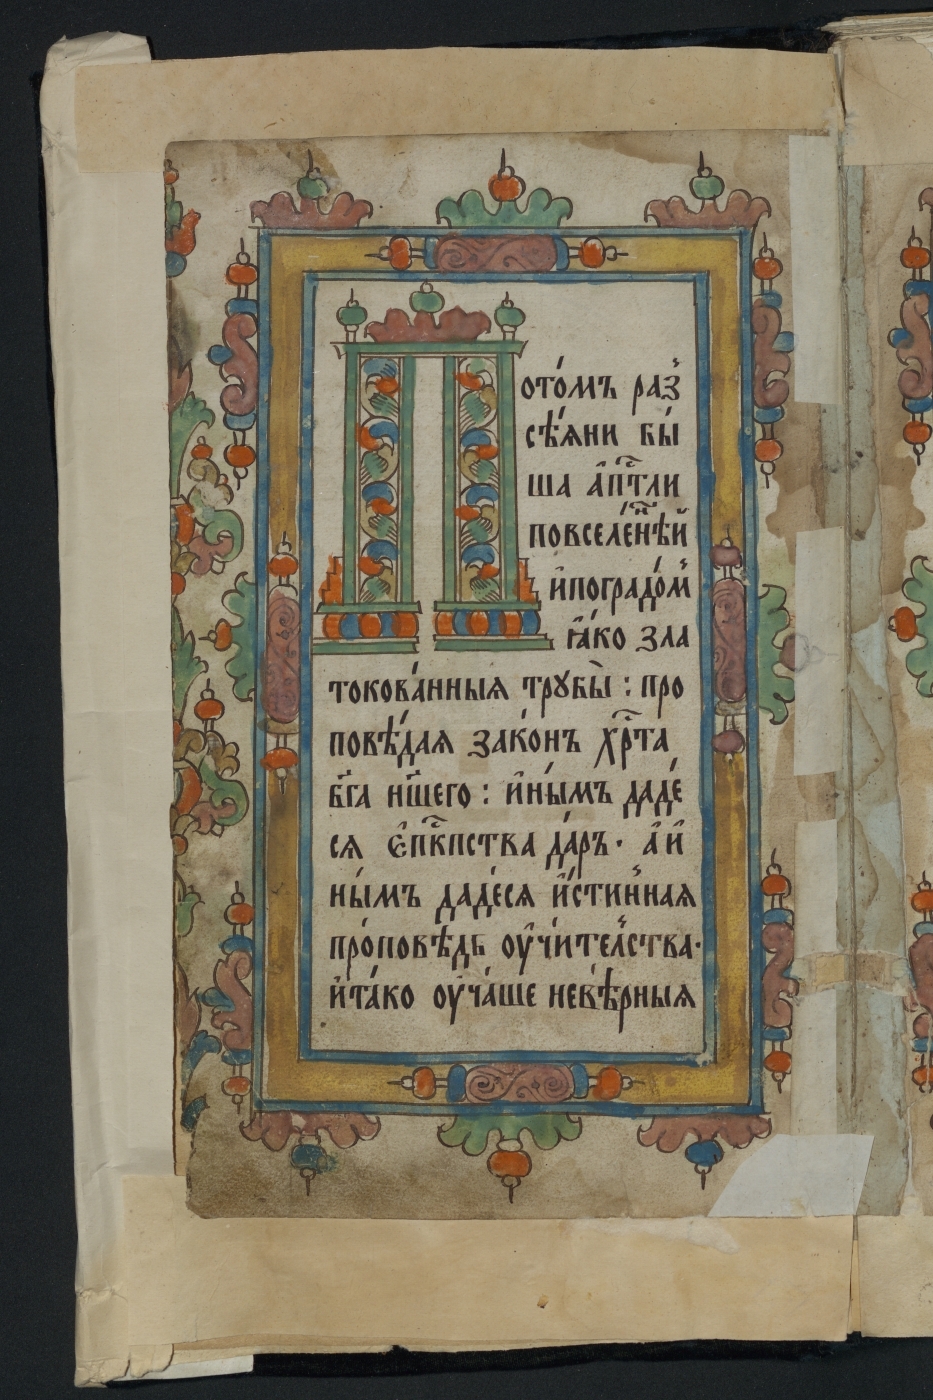 Пото́мъ раз̾
сѣ́яни бы́
ша а҆пⷭ҇тли
повселе́ннѣй
и҆погра́дом̾
ꙗ҆́ко зла
токова́нныя трꙋбы̀ : про
повѣ́дая зако́нъ хрⷭ҇та
бг҃а нш҃его : и҆ны́мъ даде́
ся є҆пⷭ҇кпства да́ръ · а҆ и҆
ны́мъ даде́ся и҆́стин̾ная
про́повѣдь ᲂу҆чи́тел̾ства ·
и҆та́ко ᲂу҆ча́ше невѣ́рныя